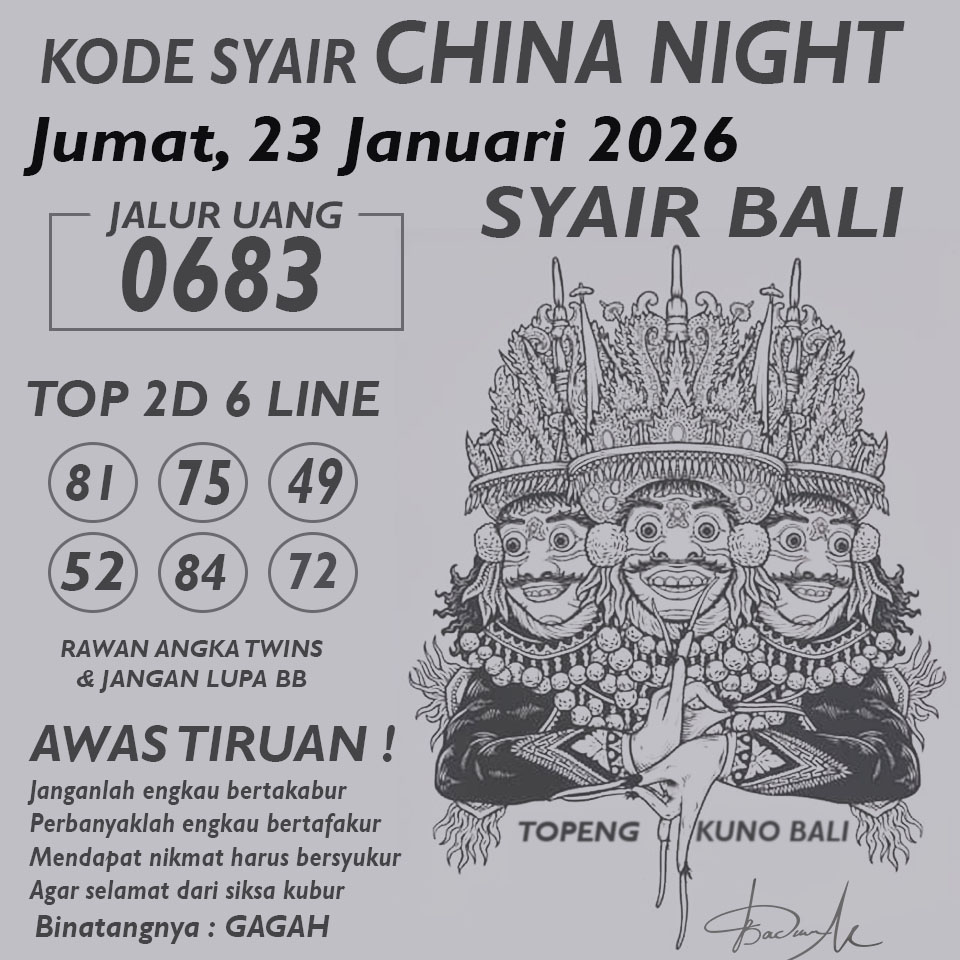 KODE SYAIR CHINA NIGHT
Jumat, 23 Januari 2026
SYAIR BALI
JALUR UANG
0683
TOP 2D 6 LINE
81 75 49
52 84 72
RAWAN ANGKA TWINS
& JANGAN LUPA BB
AWAS TIRUAN !
Janganlah engkau bertakabur
Perbanyaklah engkau bertafakur
Mendapat nikmat harus bersyukur
Agar selamat dari siksa kubur
Binatangnya : GAGAH
TOPENG KUNO BALI